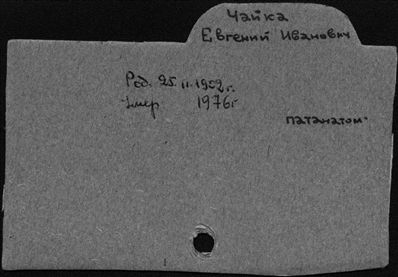 Чайка
Евгений Иванович
Род. 25.11.1902г.
умер 1976г
патанатом